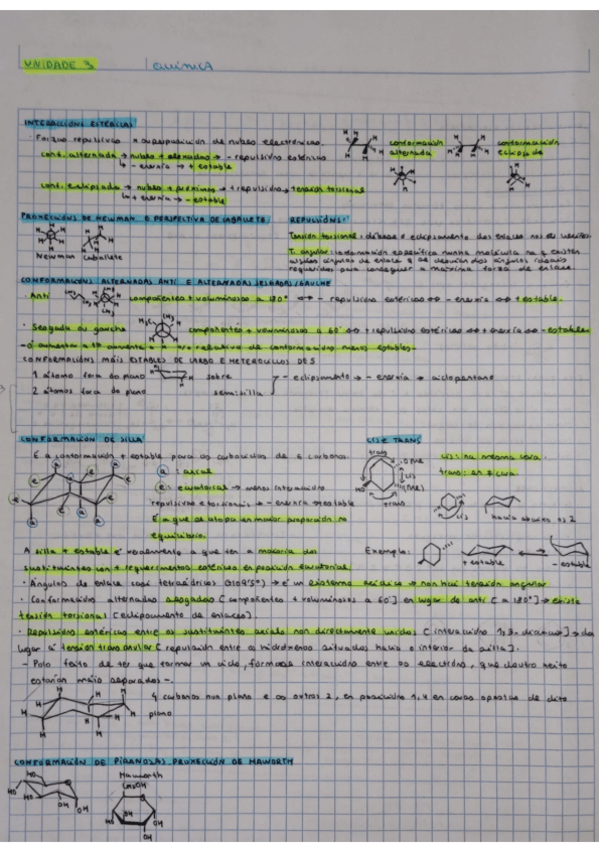 UNIDADE 3 QUÍMICA
INTERACCIÓNS ESTÉRICAS
· Forzas repulsivas x superposición de nubes electrónicas.
conf. alternada → nubes + alenadas → - repulsións estéricas
↳ - enerxía → + estable
conformación alternada
conformación eclipsada
conf. eclipsada → nubes + próximas → + repulsións → tensión torsional
↳ + enerxía → - estable
PROXECCIÓNS DE NEWMAN E PERSPECTIVA DE CABALLETE
REPULSIÓNS:
Newman Caballete
Tensión torsional: débese o eclipsamento dos enlaces nos
T. angular: conformación específica nunha molécula na q existen
ángulos de enlace q se desvían dos ángulos ideais
requiridos para conseguir a máxima forza de enlace.
CONFORMACIÓNS ALTERNADAS ANTI E ALTERNADAS SESGADAS/GAUCHE
· Anti CH3 CH3 compoñentes + voluminosos a 180° ↔ - repulsións estéricas ↔ - enerxía ↔ + estable.
· Sesgada ou gauche H3C CH3 compoñentes + voluminosos a 60° ↔ + repulsións estéricas ↔ + enerxía ↔ - estable
CONFORMACIÓNS MÁIS ESTABLES DE CARBO E HETEROCICLOS DE 5
1 átomo fora do plano sobre
2 átomos fora do plano semi-silla
- eclipsamento → - enerxía → ciclopentano
CONFORMACIÓN DE SILLA
CIS E TRANS
· É a conformación + estable para os carbociclos de 6 carbonos.
a: axial
e: ecuatorial → menos interaccións
repulsivas e torsionais → - enerxía → + estable
É a que se atopa en maior proporción no
equilibrio.
cis: na mesma cara.
trans: en ≠ cara
trans OMe cis (Me) HO trans
cis
A silla + estable é xeralmente a que ten a maioría dos
sustituintes con + requerimentos estéricos en posición ecuatorial.
Exemplo: + estable - estable
· Ángulos de enlace casi tetraédricos (109'5°) → é un sistema acíclico → non hai tensión angular
· Conformacións alternadas sesgadas [compoñentes + voluminosos a 60°] en lugar de anti (a 180°) → exista
tensión torsional [eclipsamento de enlaces].
· Repulsións estéricas entre os sustituintes axiais non directamente unidos (interaccións 1,3-diaxiais) → da
lugar á tensión transanular (repulsión entre os hidróxenos situados hacia o interior da silla].
- Polo feito de ter que formar un ciclo, fórmase interaccións entre os electróns, que doutro xeito
estarían máis separados -.
4 carbonos nun plano e os outros 2, en posición 1,4 en caras opostas de dito
plano
CONFORMACIÓN DE PIRANOSAS PROXECCIÓN DE HAWORTH
HO HO OH OH
Haworth
CH2OH
HO OH OH